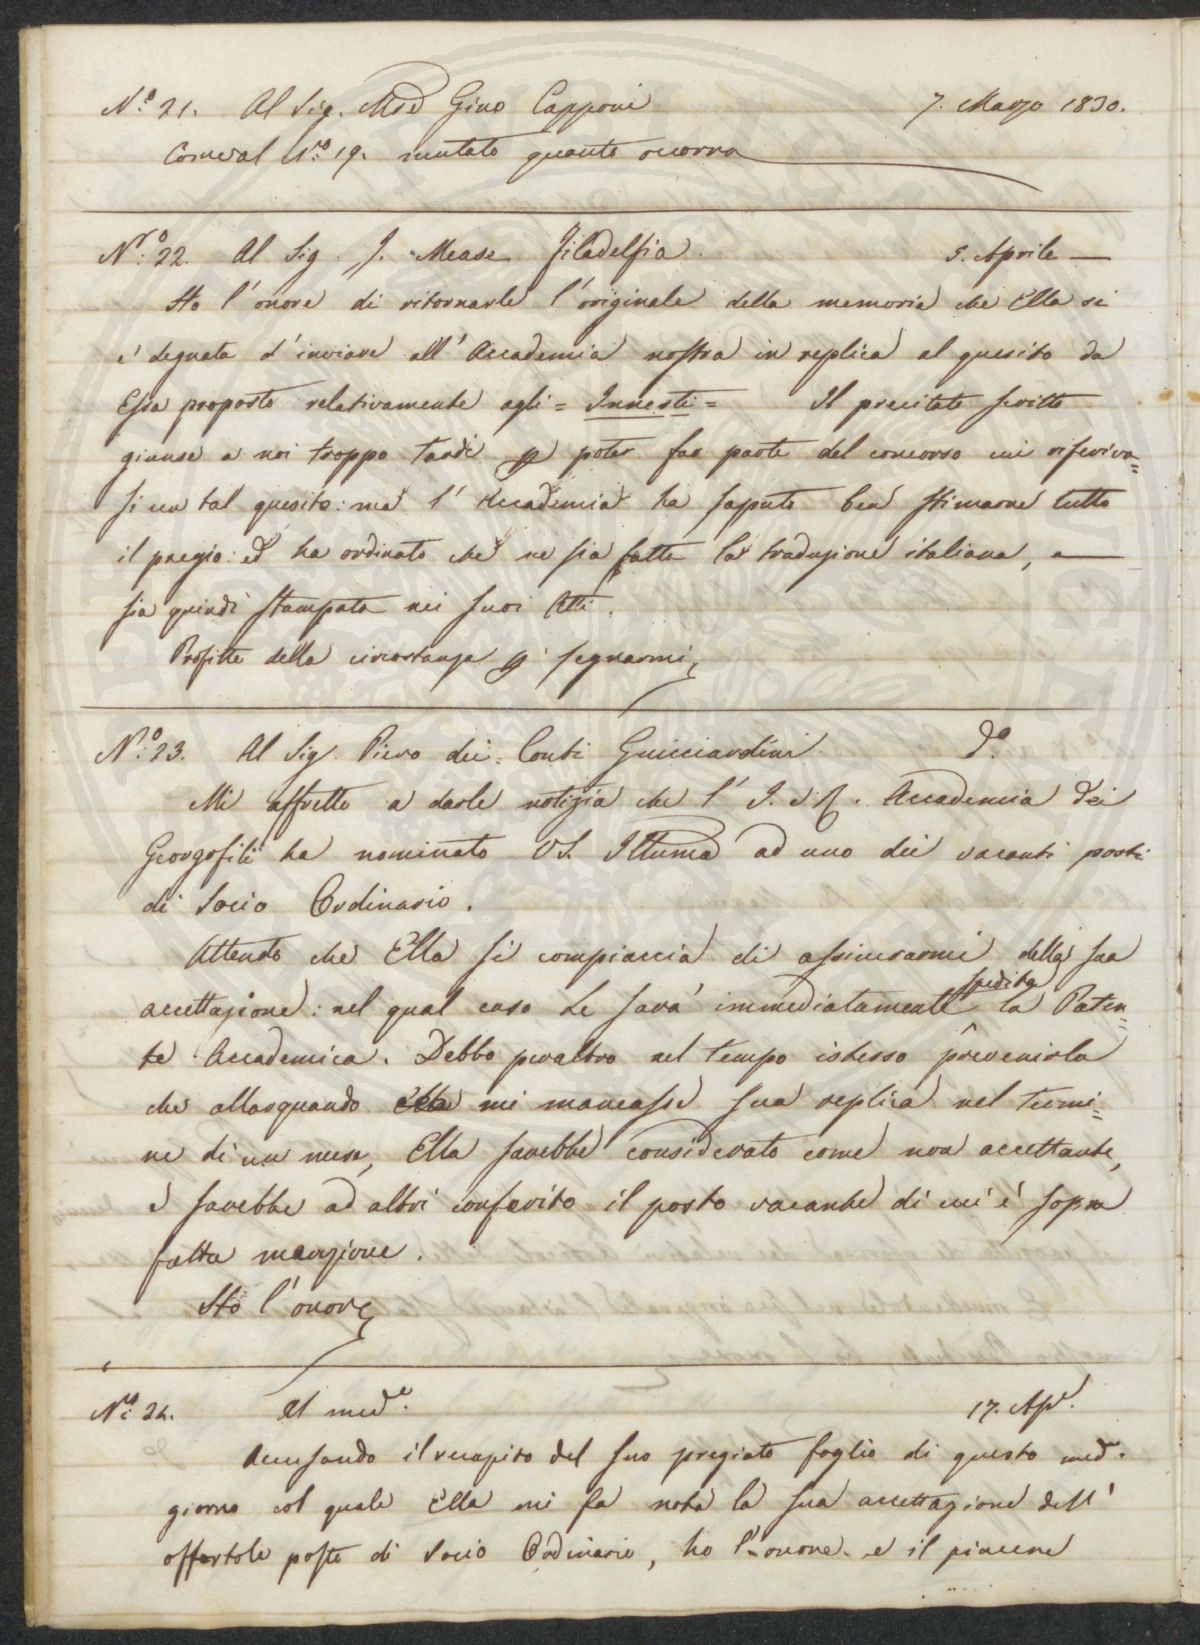 N.º 21. Al Sig. Mse Gino Capponi 7. Marzo 1830.
Come al N.ro 19. mutato quanto occorra
N.ro 22. Al Sig. J. Mease Filadelfia. 5. Aprile —
Ho l'onore di ritornarle l'originale della memoria che Ella si
è degnata d'inviare all'Accademia nostra in replica al quesito da
Essa proposto relativamente agli = Innesti = Il precitato scritto
giunse a noi troppo tardi p poter far parte del concorso cui riferiva=
si un tal quesito: ma l'Accademia ha saputo ben stimarne tutto
il pregio: ed ha ordinato che ne sia fatta la traduzione italiana, e —
sia quindi stampata nei suoi Atti.
Profitto della circostanza p segnarmi,
N.º 23. Al Sig. Piero dei Conti Guicciardini d.º
Mi affretto a darle notizia che l'I. e R. Accademia dei
Georgofili ha nominato VS. Illuma ad uno dei vacanti posti
di Socio Ordinario.
Attendo che Ella si compiaccia di assicurarmi della sua
accettazione: nel qual caso Le sarà immediatamente spedita la Paten=
te Accademica. Debbo peraltro nel tempo istesso prevenirla
che allorquando mi mancasse sua replica nel termi=
ne di un mese, Ella sarebbe considerato come non accettante,
e sarebbe ad altri conferito il posto vacante di cui è sopra
fatta menzione.
Ho l'onore
N.ro 24. Al med.º 17. Ape.
Accusando il recapito del suo pregiato foglio di questo med.
giorno col quale Ella mi fa nota la sua accettazione dell'
offertole posto di Socio Ordinario, ho l'onore e il piacere